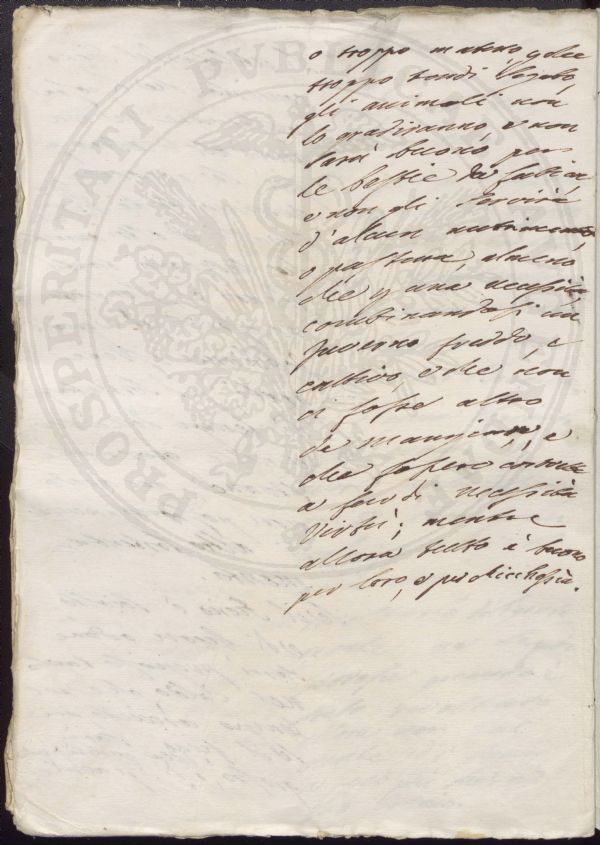 o troppo maturo, o che
troppo tardi segato,
gli animali non
lo gradiranno, e non
sarà buono per
le bestie da fatica
e non gli servirà
d'alcun nutrimento
o pastura, almeno
che p una necessità
combinandosi un
Inverno freddo, e
cattivo, e che non
ci fosse altro
da mangiare, e
che fossero costrette
a far di necessità
virtù; mentre
allora tutto è buono
per loro, e per chicchessia.
PROSPERITATI PUBLICAE